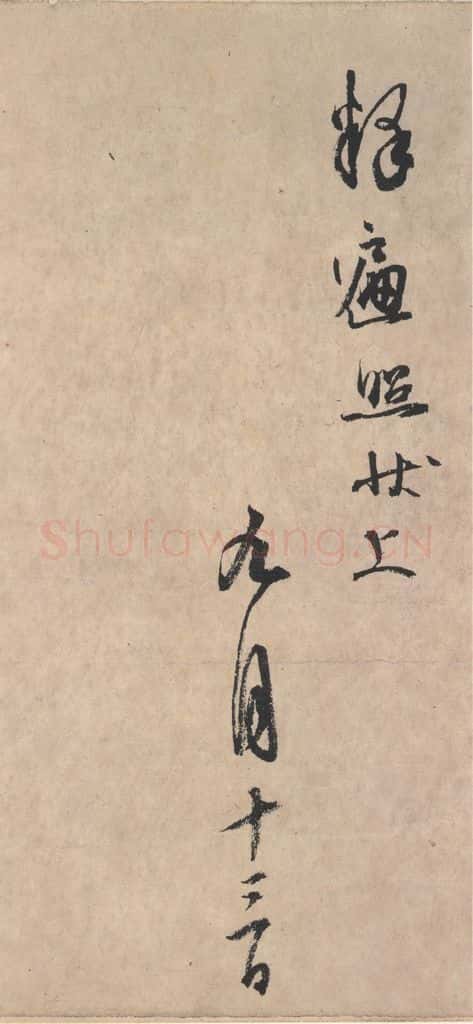 釋遍照状上
九月十三日
Shufawang.CN